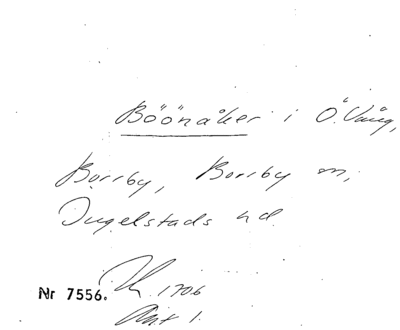 Böönåker i Ö. Vång,
Borrby, Borrby sn,
Ingelstads hd.
Nr 7556. 1706
Akt 1.